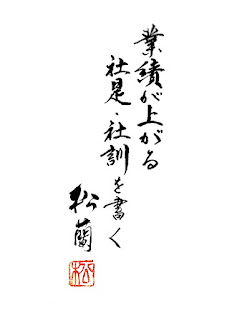 業績が上がる
社是・社訓を書く
松蘭
松